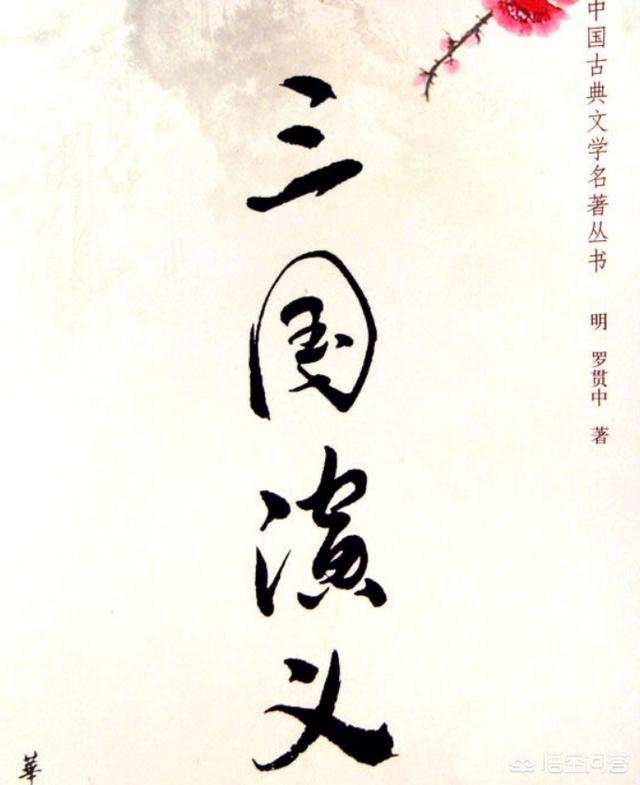 中国古典文学名著丛书
明 罗贯中 著
三国演义
華
悟空问答